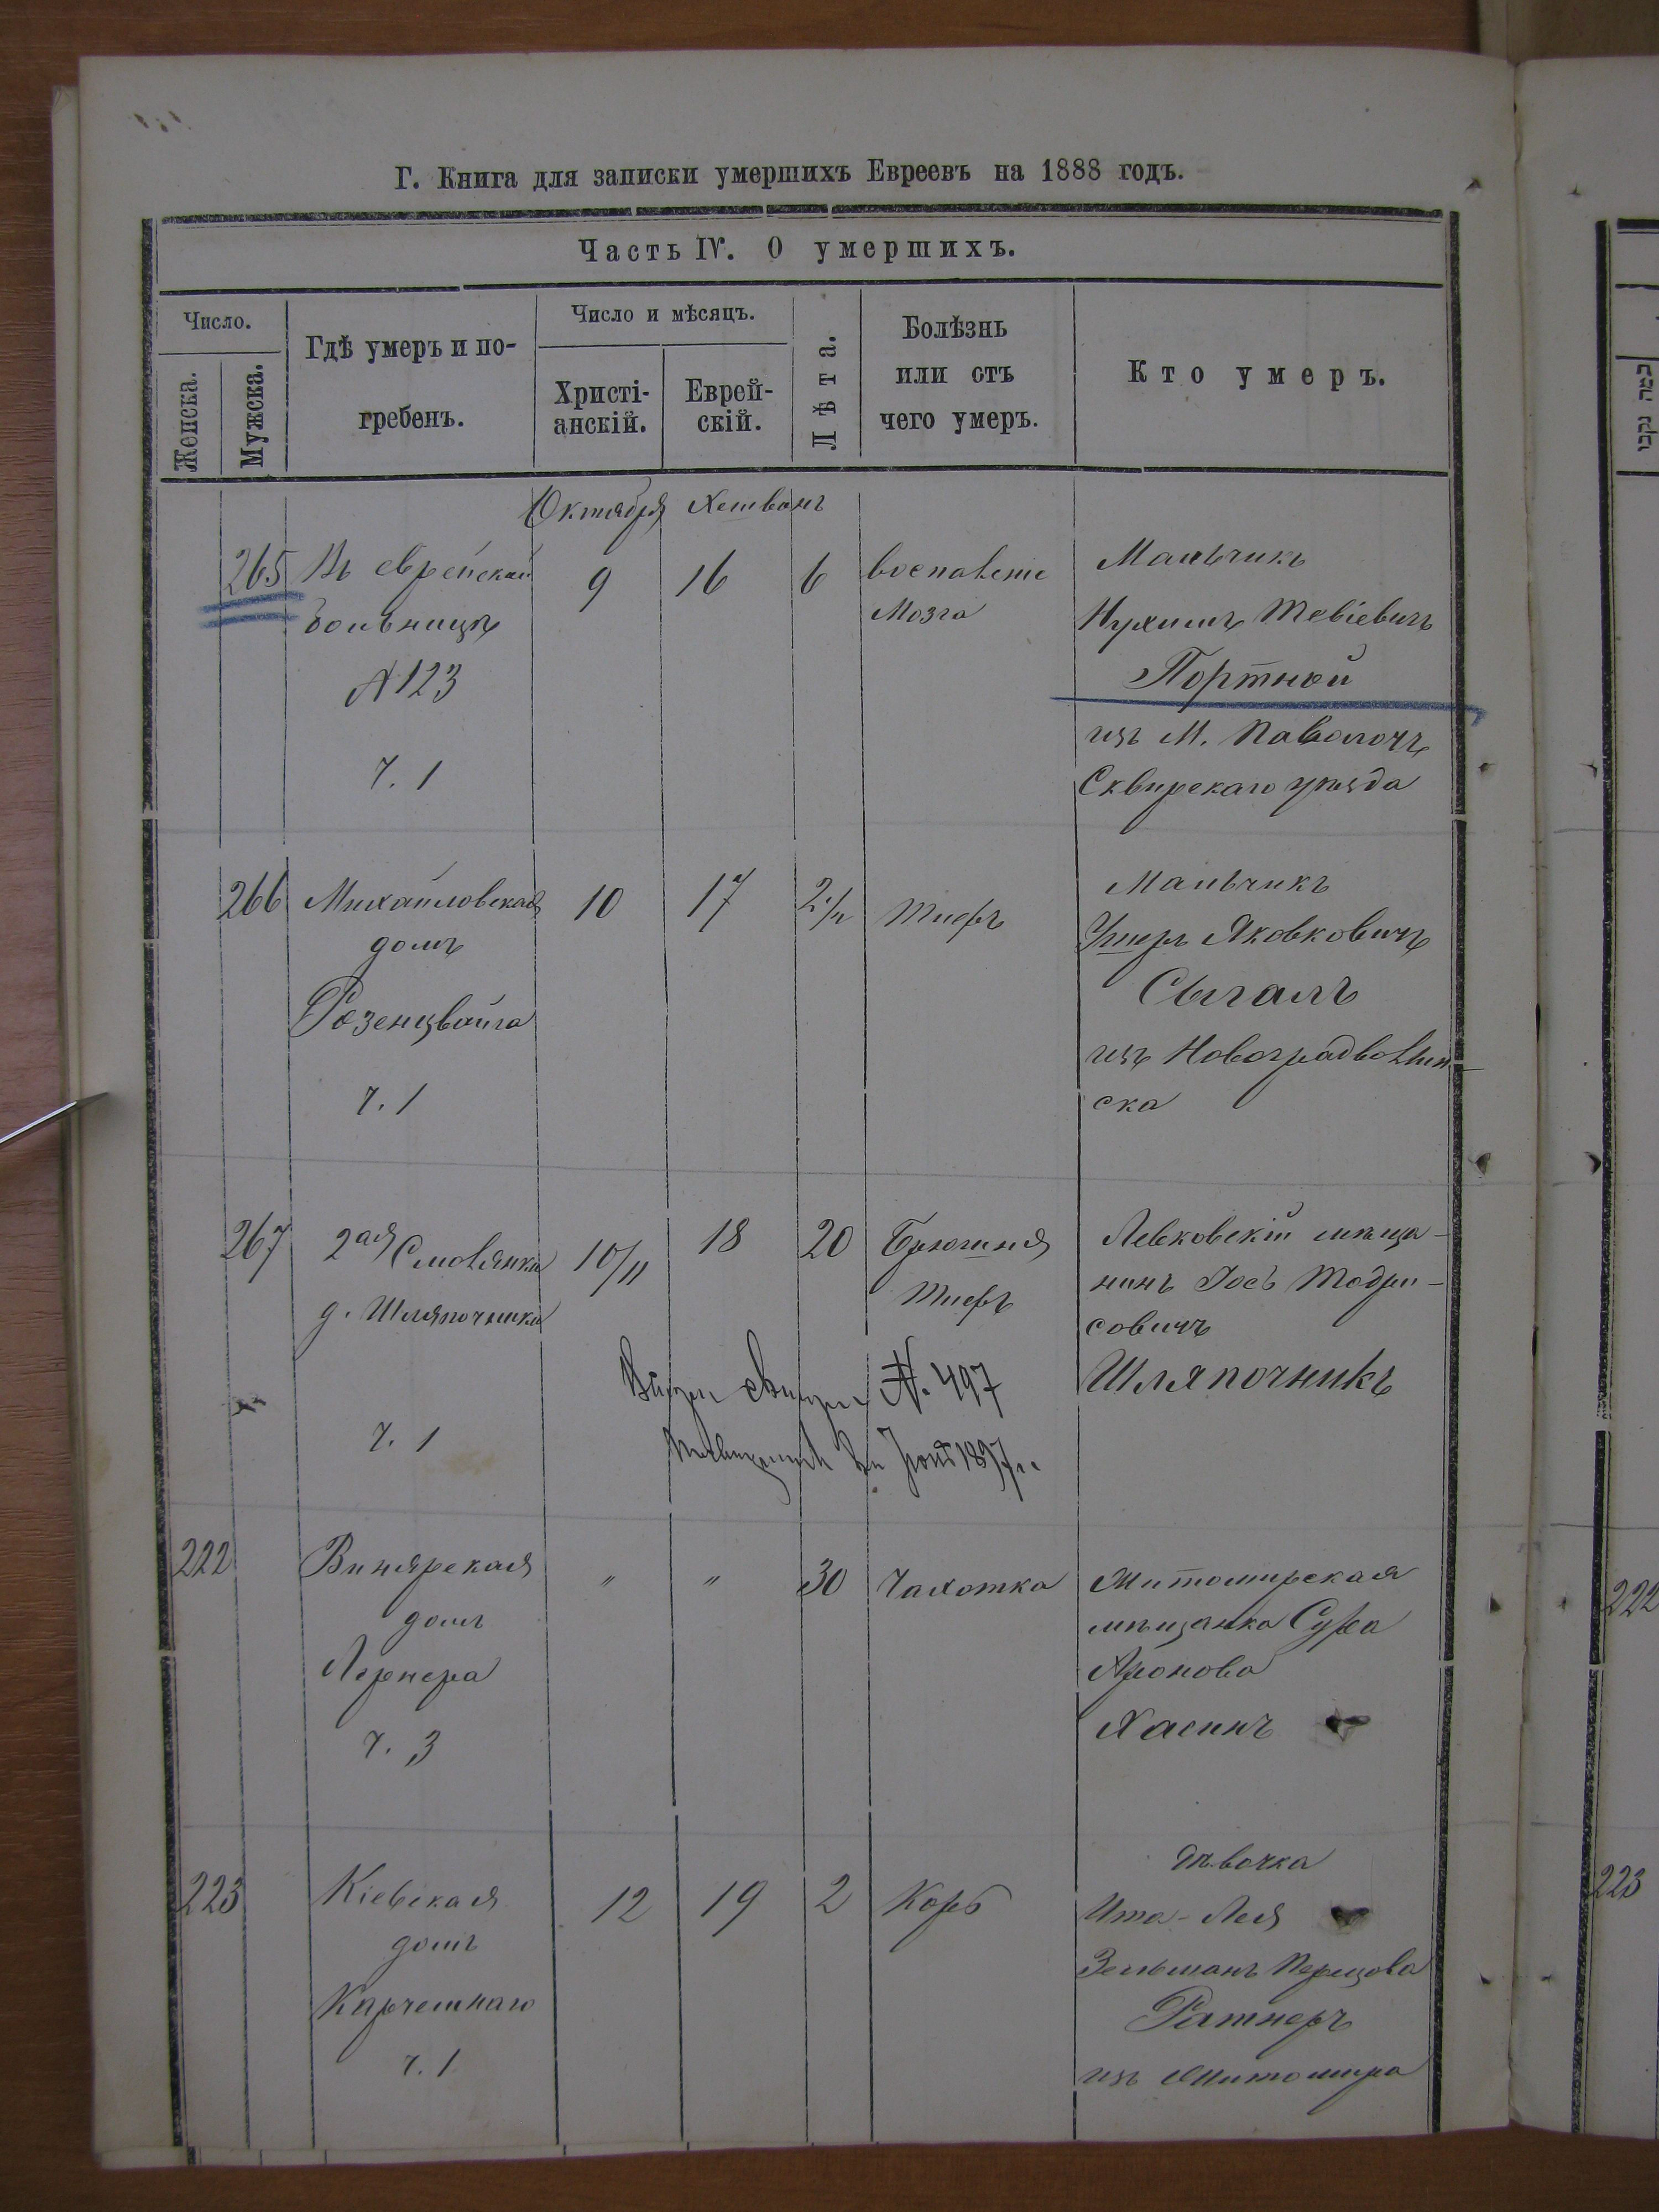 Г. Книга для записки умершихъ Евреевъ на 1888 годъ.
Часть IV. О умершихъ.
Число.
Женска.
Мужска.
Гдѣ умеръ и по-
гребенъ.
Число и мѣсяцъ.
Христі-
анскій.
Еврей-
скій.
Лѣта.
Болѣзнь
или отъ
чего умеръ.
Кто умеръ.
Октября Хешванъ
265
Въ еврейской
больницѣ
№ 123
ч. 1
9
16
6
воспаленіе
мозга
Мальчикъ
Нухимъ Тевіевичъ
Портной
изъ М. Паволочъ
Сквирскаго уѣзда
266
Михайловская
домъ
Розенцвайга
ч. 1
10
17
2 1/2
Тифъ
Мальчикъ
Яковковичъ
Сыгалъ
изъ Новоградволын-
ска
267
2ая Смолянка
д. Шляпочника
ч. 1
10/11
18
20
Брюшной
Тифъ
Левковскій мѣща-
нинъ Іосъ Тодри-
совичъ
Шляпочникъ
№ 497
1897 г.
222
Винярская
домъ
Лернера
ч. 3
"
"
30
Чахотка
Житомирская
мѣщанка Сура
Аронова
Хасинъ
223
Кіевская
домъ
Карчемнаго
ч. 1
12
19
2
Корь
дѣвочка
Ита-Лея
Зельманъ Перцова
Ратнеръ
изъ Житомира
כמה נקבו
222
223